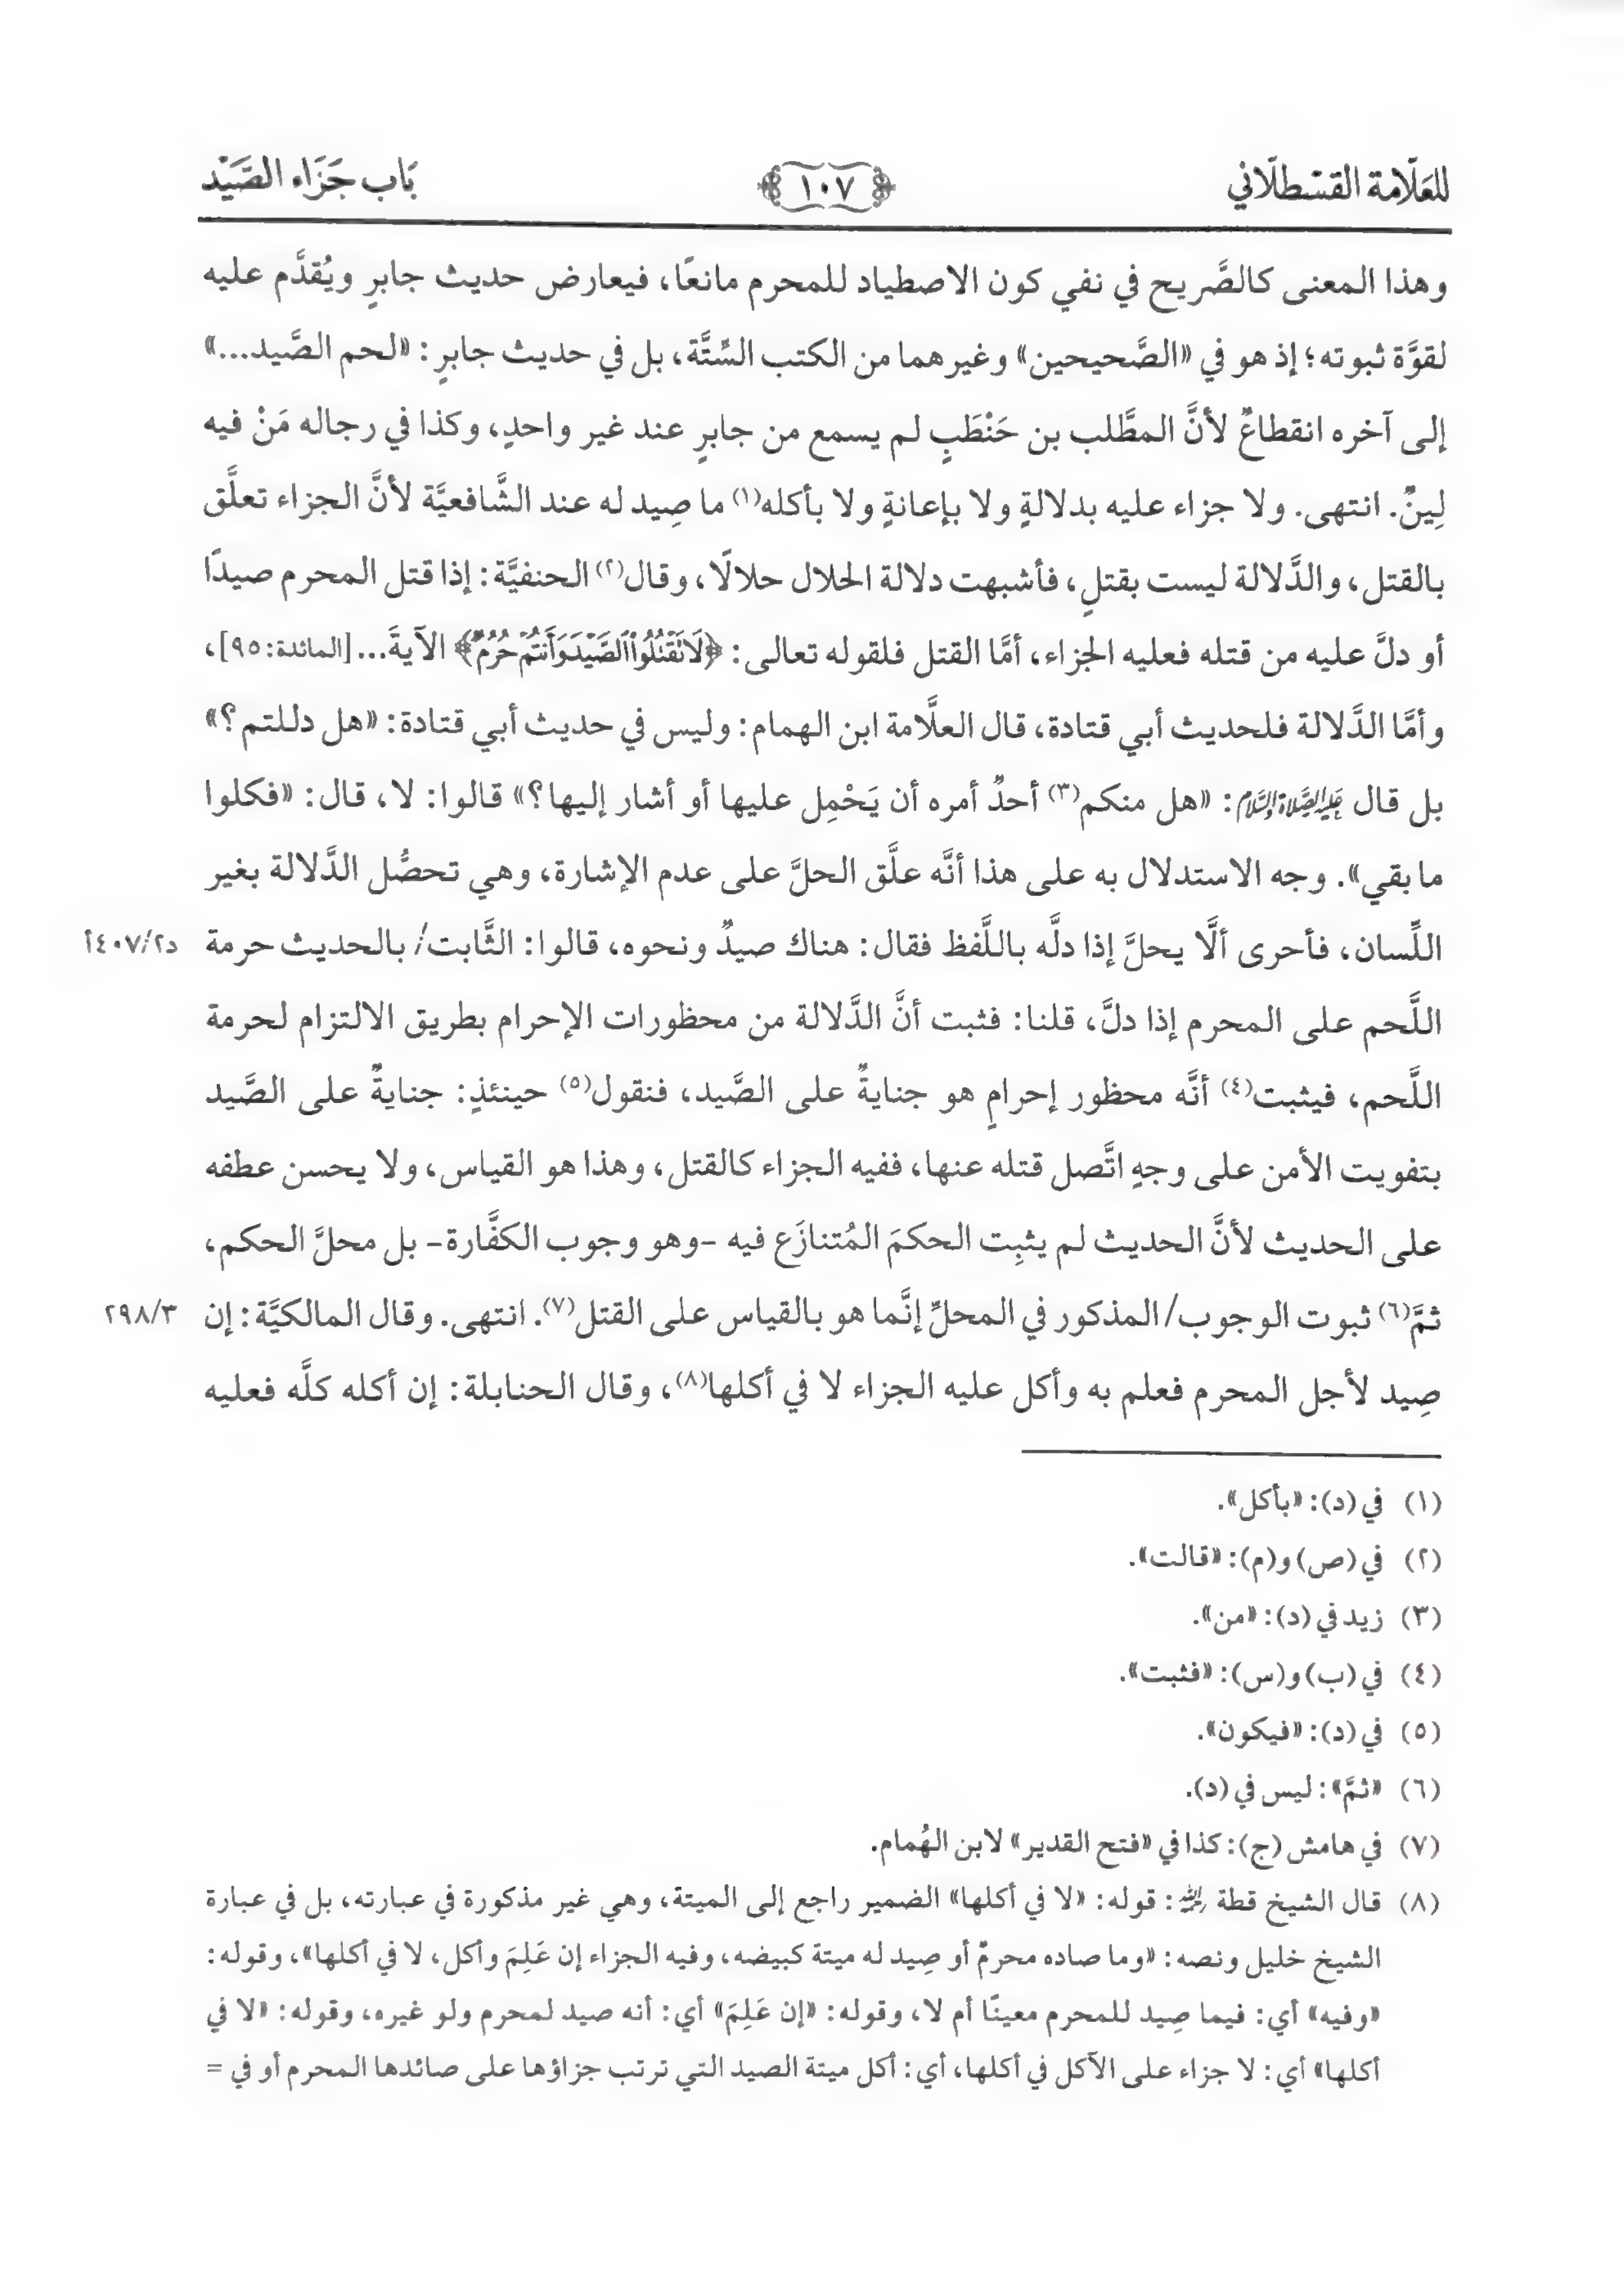 للعلّامة القسطلّاني
١٠٧
بَاب جَزَاء الصَّيْد
وهذا المعنى كالصَّريح في نفي كون الاصطياد للمحرم مانعًا، فيعارض حديث جابرٍ ويُقدَّم عليه
لقوَّة ثبوته؛ إذ هو في «الصَّحيحين» وغيرهما من الكتب السِّتَّة، بل في حديث جابرٍ: «لحم الصَّيد...»
إلى آخره انقطاعٌ لأنَّ المطَّلب بن حَنْطَبٍ لم يسمع من جابرٍ عند غير واحدٍ، وكذا في رجاله مَنْ فيه
لِينٌ. انتهى. ولا جزاء عليه بدلالةٍ ولا بإعانةٍ ولا بأكله(١) ما صِيد له عند الشَّافعيَّة لأنَّ الجزاء تعلَّق
بالقتل، والدَّلالة ليست بقتلٍ، فأشبهت دلالة الحلال حلالًا، وقال(٢) الحنفيَّة: إذا قتل المحرم صيدًا
أو دلَّ عليه من قتله فعليه الجزاء، أمَّا القتل فلقوله تعالى: ﴿لَا تَقْتُلُوا۟ ٱلصَّيْدَ وَأَنتُمْ حُرُمٌ﴾ الآيةَ... [المائدة: ٩٥]،
وأمَّا الدَّلالة فلحديث أبي قتادة، قال العلَّامة ابن الهمام: وليس في حديث أبي قتادة: «هل دللتم؟»
بل قال عَلَيْهِ الصَّلَاةُ وَالسَّلَامُ: «هل منكم(٣) أحدٌ أمره أن يَحْمِل عليها أو أشار إليها؟» قالوا: لا، قال: «فكلوا
ما بقي». وجه الاستدلال به على هذا أنَّه علَّق الحلَّ على عدم الإشارة، وهي تحصُّل الدَّلالة بغير
اللِّسان، فأحرى ألَّا يحلَّ إذا دلَّه باللَّفظ فقال: هناك صيدٌ ونحوه، قالوا: الثَّابت/ بالحديث حرمة
د٤٠٧/٢أ
اللَّحم على المحرم إذا دلَّ، قلنا: فثبت أنَّ الدَّلالة من محظورات الإحرام بطريق الالتزام لحرمة
اللَّحم، فيثبت(٤) أنَّه محظور إحرامٍ هو جنايةٌ على الصَّيد، فنقول(٥) حينئذٍ: جنايةٌ على الصَّيد
بتفويت الأمن على وجهٍ اتَّصل قتله عنها، ففيه الجزاء كالقتل، وهذا هو القياس، ولا يحسن عطفه
على الحديث لأنَّ الحديث لم يثبِت الحكمَ المُتنازَع فيه -وهو وجوب الكفَّارة- بل محلَّ الحكم،
ثمَّ(٦) ثبوت الوجوب/ المذكور في المحلِّ إنَّما هو بالقياس على القتل(٧). انتهى. وقال المالكيَّة: إن
٢٩٨/٣
صِيد لأجل المحرم فعلم به وأكل عليه الجزاء لا في أكلها(٨)، وقال الحنابلة: إن أكله كلَّه فعليه
(١) في (د): «بأكل».
(٢) في (ص) و(م): «قالت».
(٣) زيد في (د): «من».
(٤) في (ب) و(س): «فثبت».
(٥) في (د): «فيكون».
(٦) «ثمَّ»: ليس في (د).
(٧) في هامش (ج): كذا في «فتح القدير» لابن الهُمام.
(٨) قال الشيخ قطة رحمه الله: قوله: «لا في أكلها» الضمير راجع إلى الميتة، وهي غير مذكورة في عبارته، بل في عبارة
الشيخ خليل ونصه: «وما صاده محرمٌ أو صِيد له ميتة كبيضه، وفيه الجزاء إن عَلِمَ وأكل، لا في أكلها»، وقوله:
«وفيه» أي: فيما صِيد للمحرم معينًا أم لا، وقوله: «إن عَلِمَ» أي: أنه صيد لمحرم ولو غيره، وقوله: «لا في
أكلها» أي: لا جزاء على الآكل في أكلها، أي: أكل ميتة الصيد التي ترتب جزاؤها على صائدها المحرم أو في =